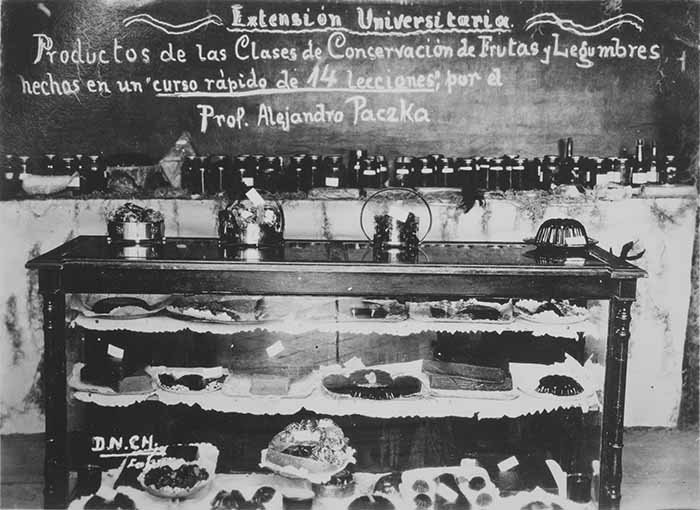 Extensión Universitaria.
Productos de las Clases de Conservación de Frutas y Legumbres
hechos en un "curso rápido de 14 lecciones", por el
Prof. Alejandro Paczka
D.N.CH.